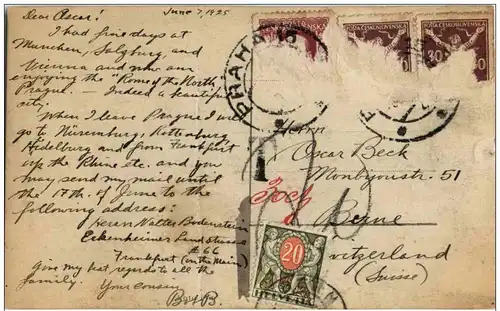 June 7, 1925
Dear Oscar!
I had fine days at
Munchen, Salzburg and
Vienna and now am
enjoying the "Rome of the North"
Prague. — Indeed a beautiful
city.
When I leave Prague I will
go to Nürenburg, Rottenburg
Hidelburg and from Frankfurt
up the Rhine etc. and you
may send my mail until
the 17th of June to the
following address:
Herrn Walter Bodenstein
Eckenheimer Landstrasse
#66
Frankfurt (on the Main)
Give my best regards to all the
family. Your cousin
POŠTA ČESKOSLOVENSKÁ
POŠTA ČESKOSLOVENSKÁ
30
PRAHA
Herrn
Oscar Beck
Monbijoustr. 51
Berne
Switzerland
(Suisse)
1
20
HELVETIA